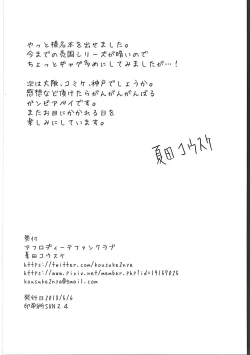 やっと榛名本を出せました。
今までの売国シリーズが暗いので
ちょっとギャグ多めにしてみましたが…！
次は大阪、コミケ、神戸でしょうか。
感想など頂けたらがんがんがんばる
ガンビアベイです。
またお目にかかれる日を
楽しみにしています。
夏田コウスケ
発行
アフロディーテファンクラブ
夏田コウスケ
https://twitter.com/kousuke2nyo
https://www.pixiv.net/member.php?id=19159025
kousuke2nyo@gmail.com
発行日2018/5/6
印刷所SUN24